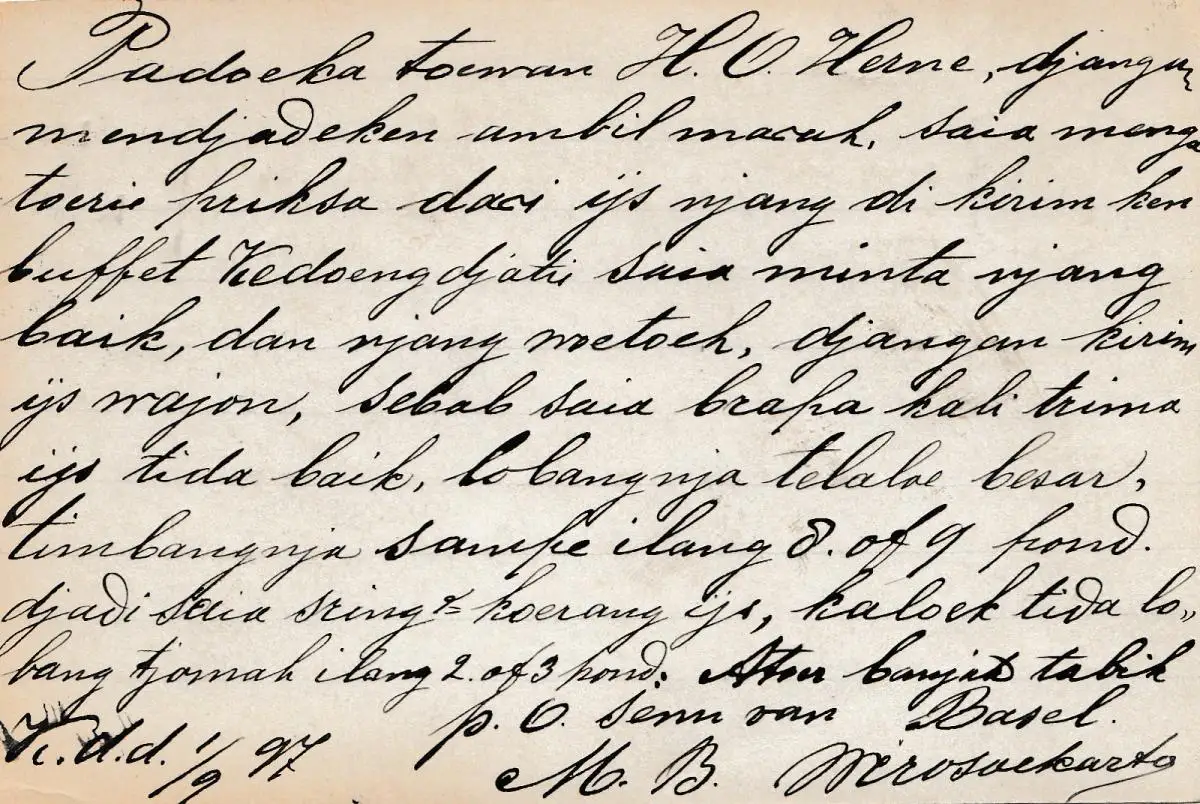 Padoeka toewan H. O. Herne, djangan
mendjadeken ambil marah, saia menga
toerie priksa dari ijs njang di kirim ken
buffet Kedoengdjatie saia minta njang
baik, dan njang woetoeh, djangan kirim
ijs wajon, sebab saia brapa kali trima
ijs tida baik, lobangnja telaloe besar,
timbangnja sampe ilang 8. of 9 pond.
djadi saia sring2= koerang ijs, kaloek tida lo„
bang tjomah ilang 2. of 3 pond: Atur banjak tabik
p. O. Senn van Basel.
K.d.d. 1/9 97
M. B. Wirosoekarto